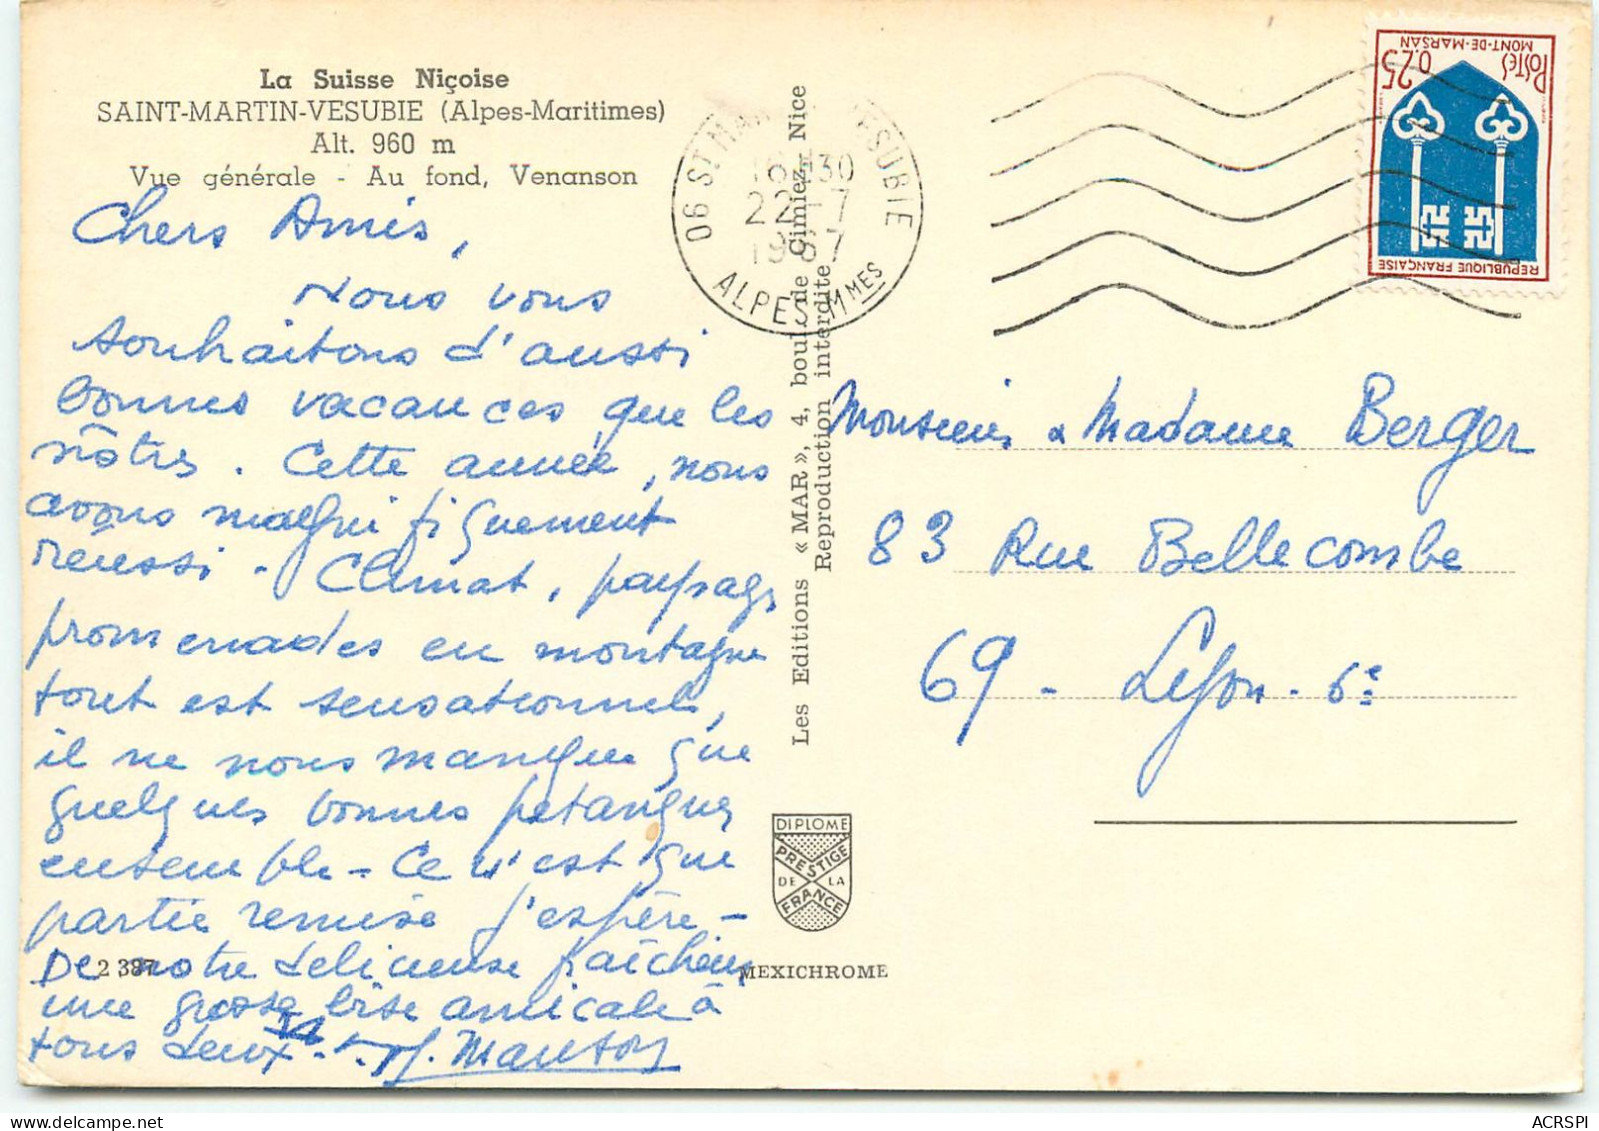 La Suisse Niçoise
SAINT-MARTIN-VESUBIE (Alpes-Maritimes)
Alt. 960 m
Vue générale - Au fond, Venanson
Chers Amis,
Nous vous
souhaitons d'aussi
bonnes vacances que les
nôtres. Cette année, nous
avons magnifiquement
réussi. Climat, paysage
promenades en montagne
tout est sensationnel,
il ne nous manque que
quelques bonnes petanques
ensemble - Ce n'est que
partie remise j'espère -
De notre délicieuse fraîcheur
une grosse bise amicale à
tous deux.
2 387
06 ST MAR ESUBIE
16 H30
22-7
1967
ALPES-MMES
Les Editions « MAR », 4, boul. de Cimiez, Nice
Reproduction interdite
DIPLOME
PRESTIGE
DE LA
FRANCE
MEXICHROME
POSTES
0.25
MONT-DE-MARSAN
REPUBLIQUE FRANÇAISE
Monsieur & Madame Berger
83 Rue Bellecombe
69 - Lyon - 6e
ACRSPI